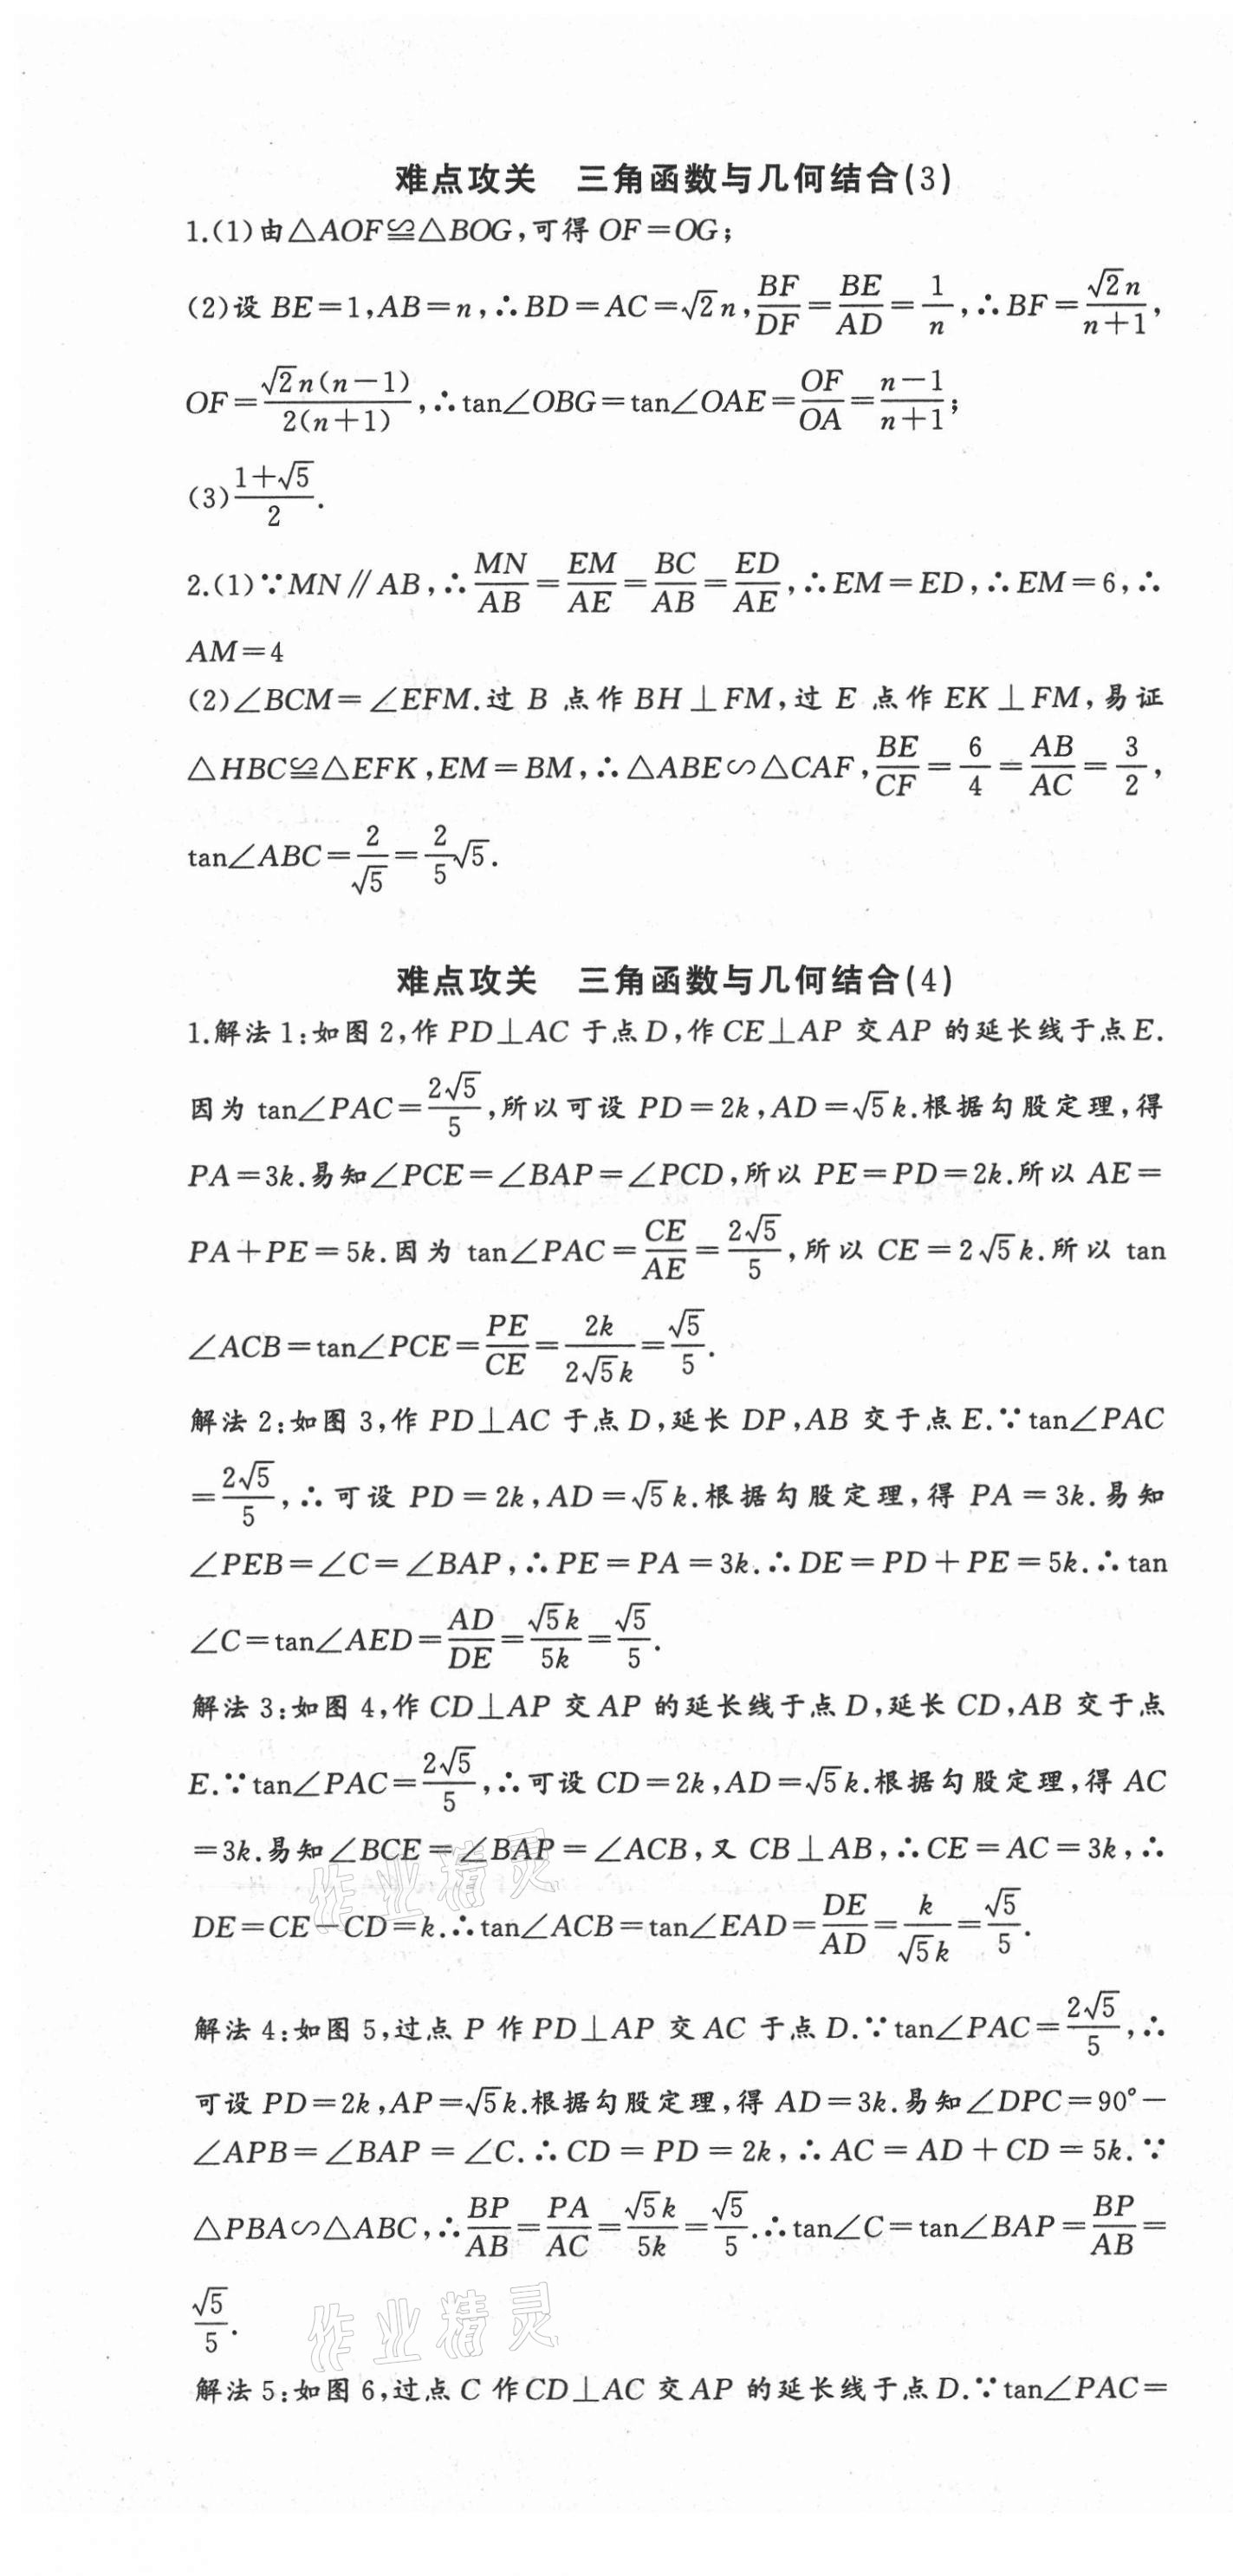 难点攻关　三角函数与几何结合(3)
1.(1)由△AOF≌△BOG,可得 OF=OG;
(2)设 BE=1,AB=n,∴BD=AC=√2n,BF/DF=BE/AD=1/n,∴BF=√2n/(n+1),
OF=√2n(n-1)/2(n+1),∴tan∠OBG=tan∠OAE=OF/OA=(n-1)/(n+1);
(3)(1+√5)/2.
2.(1)∵MN∥AB,∴MN/AB=EM/AE=BC/AB=ED/AE,∴EM=ED,∴EM=6,∴
AM=4
(2)∠BCM=∠EFM.过 B 点作 BH⊥FM,过 E 点作 EK⊥FM,易证
△HBC≌△EFK,EM=BM,∴△ABE∽△CAF,BE/CF=6/4=AB/AC=3/2,
tan∠ABC=2/√5=2/5√5.
难点攻关　三角函数与几何结合(4)
1.解法 1:如图 2,作 PD⊥AC 于点 D,作 CE⊥AP 交 AP 的延长线于点 E.
因为 tan∠PAC=2√5/5,所以可设 PD=2k,AD=√5k.根据勾股定理,得
PA=3k.易知∠PCE=∠BAP=∠PCD,所以 PE=PD=2k.所以 AE=
PA+PE=5k.因为 tan∠PAC=CE/AE=2√5/5,所以 CE=2√5k.所以 tan
∠ACB=tan∠PCE=PE/CE=2k/2√5k=√5/5.
解法 2:如图 3,作 PD⊥AC 于点 D,延长 DP,AB 交于点 E.∵tan∠PAC
=2√5/5,∴可设 PD=2k,AD=√5k.根据勾股定理,得 PA=3k.易知
∠PEB=∠C=∠BAP,∴PE=PA=3k.∴DE=PD+PE=5k.∴tan
∠C=tan∠AED=AD/DE=√5k/5k=√5/5.
解法 3:如图 4,作 CD⊥AP 交 AP 的延长线于点 D,延长 CD,AB 交于点
E.∵tan∠PAC=2√5/5,∴可设 CD=2k,AD=√5k.根据勾股定理,得 AC
=3k.易知∠BCE=∠BAP=∠ACB,又 CB⊥AB,∴CE=AC=3k,∴
作业精灵
DE=CE-CD=k.∴tan∠ACB=tan∠EAD=DE/AD=k/√5k=√5/5.
解法 4:如图 5,过点 P 作 PD⊥AP 交 AC 于点 D.∵tan∠PAC=2√5/5,∴
可设 PD=2k,AP=√5k.根据勾股定理,得 AD=3k.易知∠DPC=90°-
∠APB=∠BAP=∠C.∴CD=PD=2k,∴AC=AD+CD=5k.∵
△PBA∽△ABC,∴BP/AB=PA/AC=√5k/5k=√5/5.∴tan∠C=tan∠BAP=BP/AB=
√5/5.
作业精灵
解法 5:如图 6,过点 C 作 CD⊥AC 交 AP 的延长线于点 D.∵tan∠PAC=